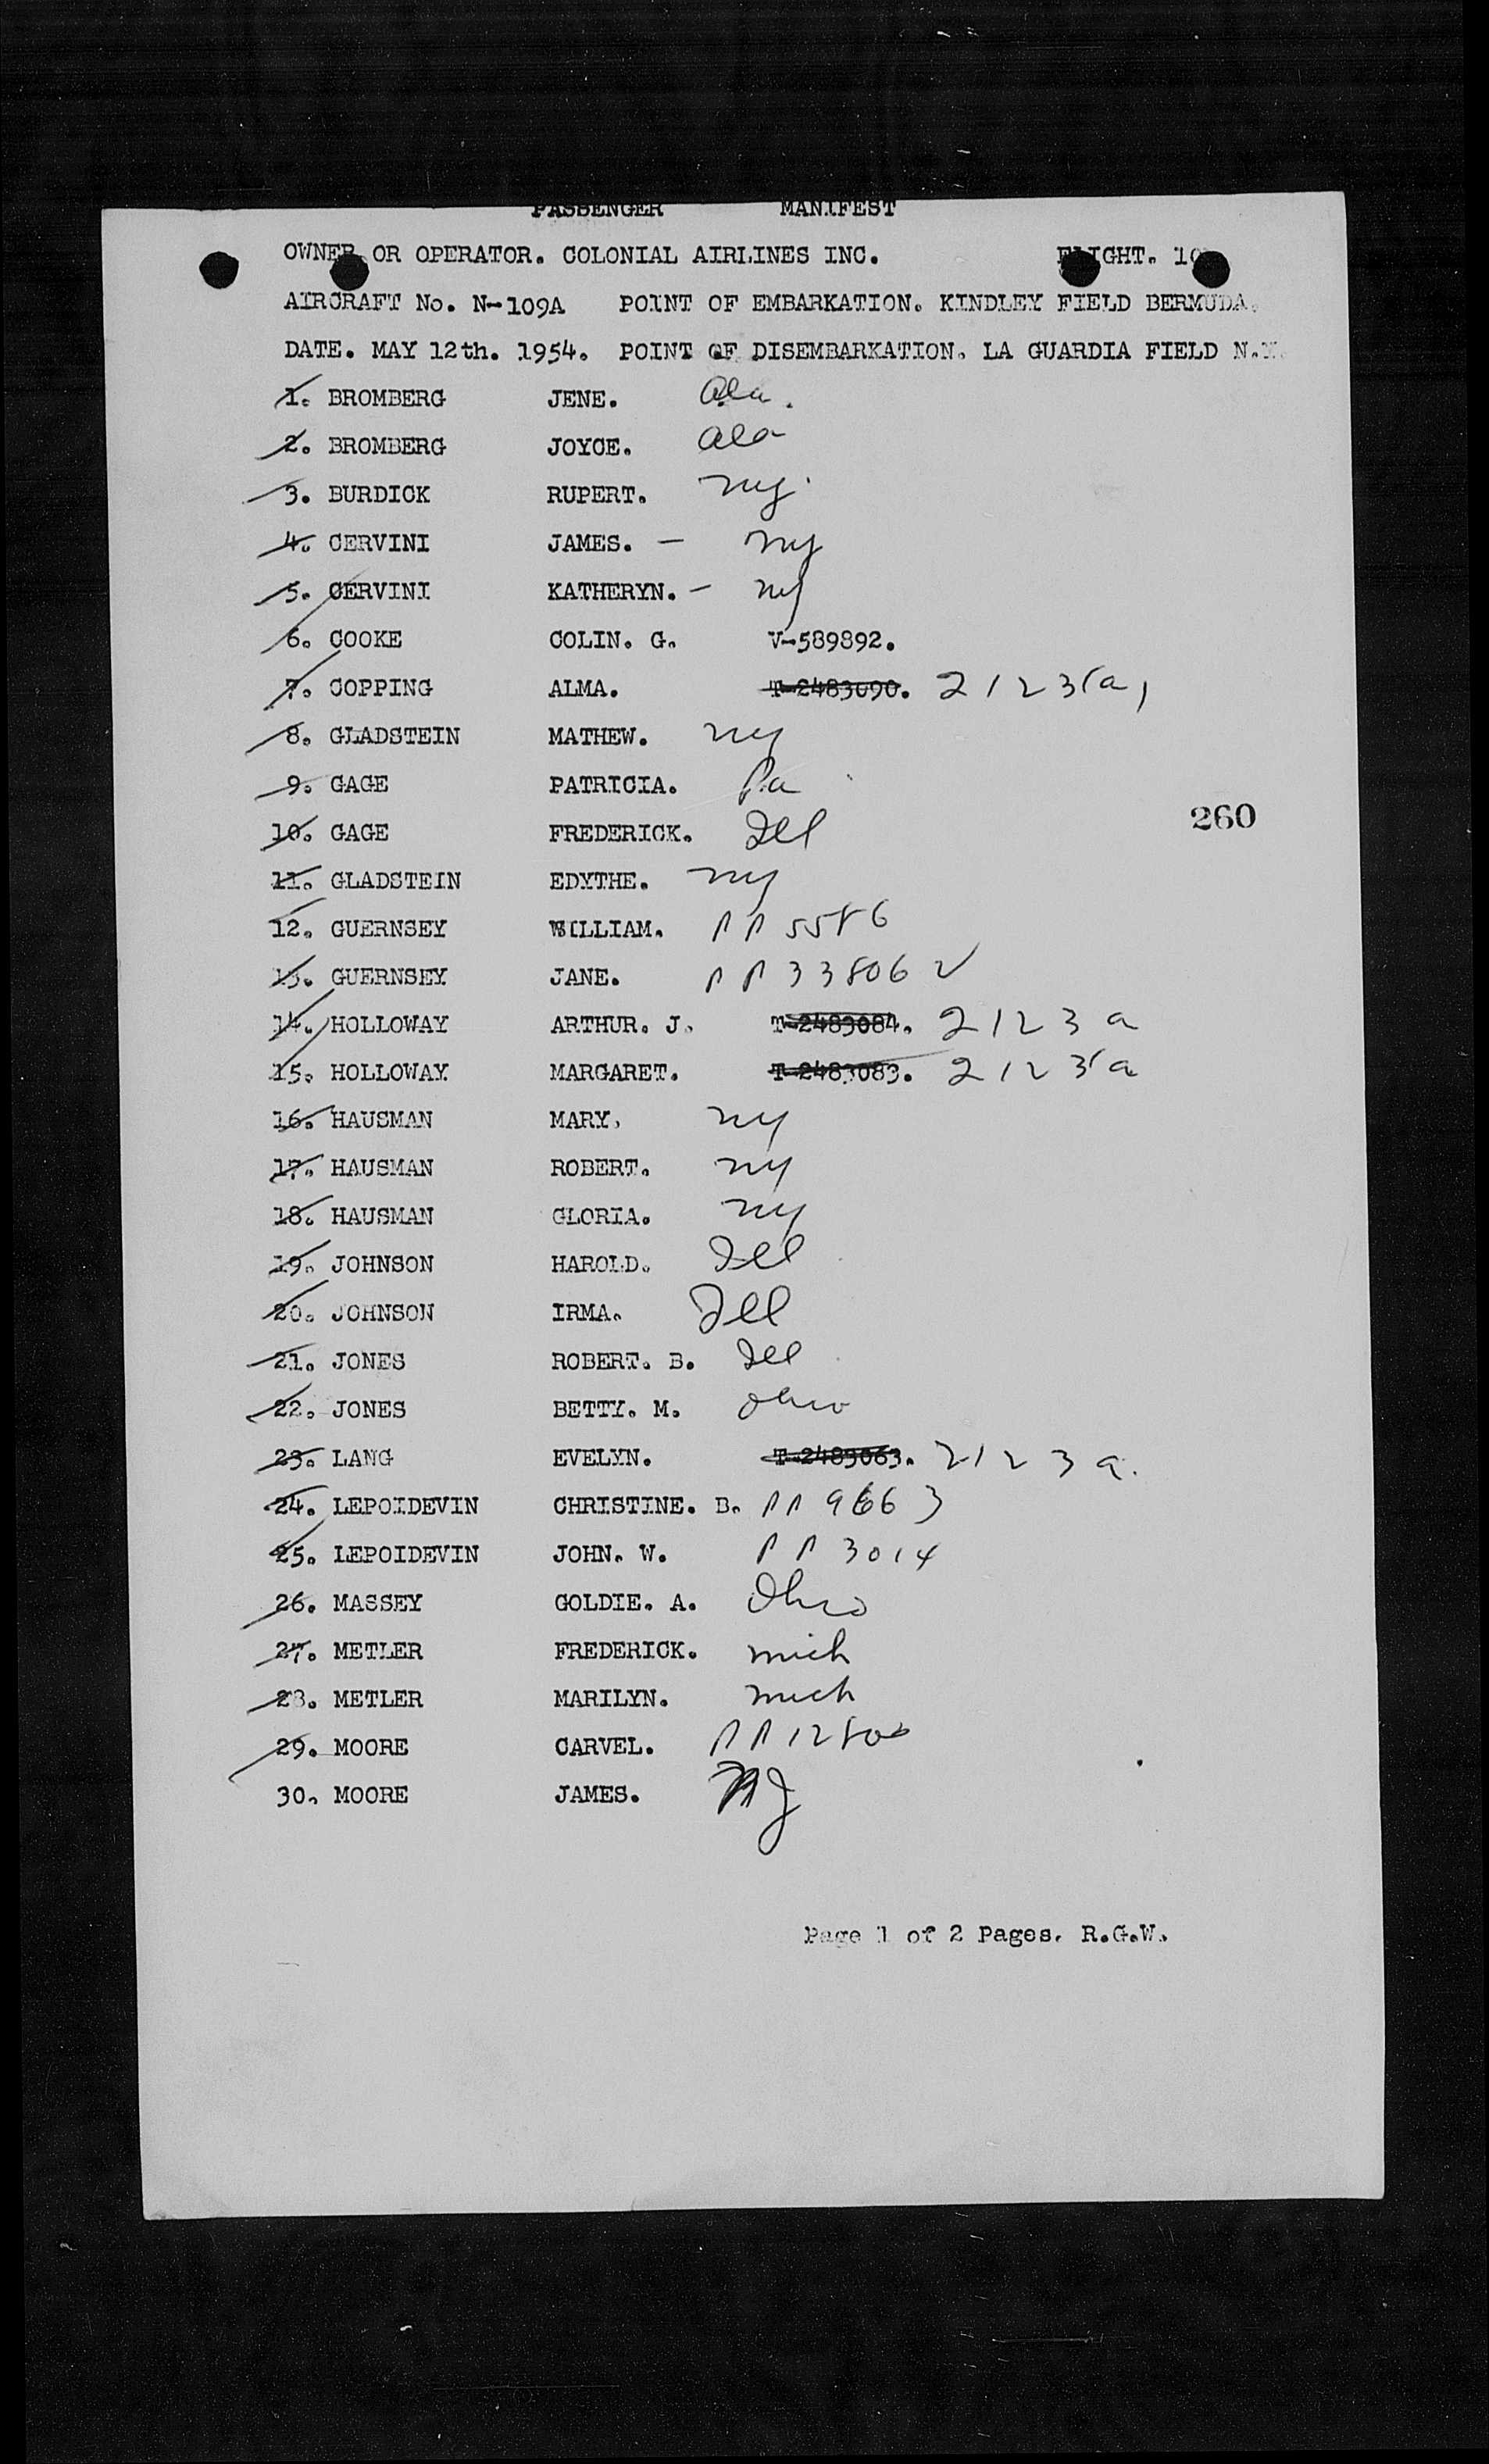 PASSENGER MANIFEST
OWNER OR OPERATOR. COLONIAL AIRLINES INC. FLIGHT.
AIRCRAFT No. N-109A POINT OF EMBARKATION. KINDLEY FIELD BERMUDA.
DATE. MAY 12th. 1954. POINT OF DISEMBARKATION. LA GUARDIA FIELD N.Y.
1. BROMBERG JENE. Ala.
2. BROMBERG JOYCE. Ala
3. BURDICK RUPERT. ny.
4. CERVINI JAMES. — ny
5. CERVINI KATHERYN. — ny
6. COOKE COLIN. G. V-589892.
7. COPPING ALMA. T-2483090. 2123(a)
8. GLADSTEIN MATHEW. ny
9. GAGE PATRICIA. Pa
10. GAGE FREDERICK. Ill
260
11. GLADSTEIN EDYTHE. ny
12. GUERNSEY WILLIAM. PP 5586
13. GUERNSEY JANE. PP 33806
14. HOLLOWAY ARTHUR. J. T-2483084. 2123 a
15. HOLLOWAY MARGARET. T-2483083. 2123 a
16. HAUSMAN MARY. ny
17. HAUSMAN ROBERT. ny
18. HAUSMAN GLORIA. ny
19. JOHNSON HAROLD. Ill
20. JOHNSON IRMA. Ill
21. JONES ROBERT. B. Ill
22. JONES BETTY. M. Ohio
23. LANG EVELYN. T-2483063. 2123 a.
24. LEPOIDEVIN CHRISTINE. B. PP 9663
25. LEPOIDEVIN JOHN. W. PP 3014
26. MASSEY GOLDIE. A. Ohio
27. METLER FREDERICK. mich
28. METLER MARILYN. mich
29. MOORE CARVEL. PP 12800
30. MOORE JAMES. NJ
Page 1 of 2 Pages. R.G.W.